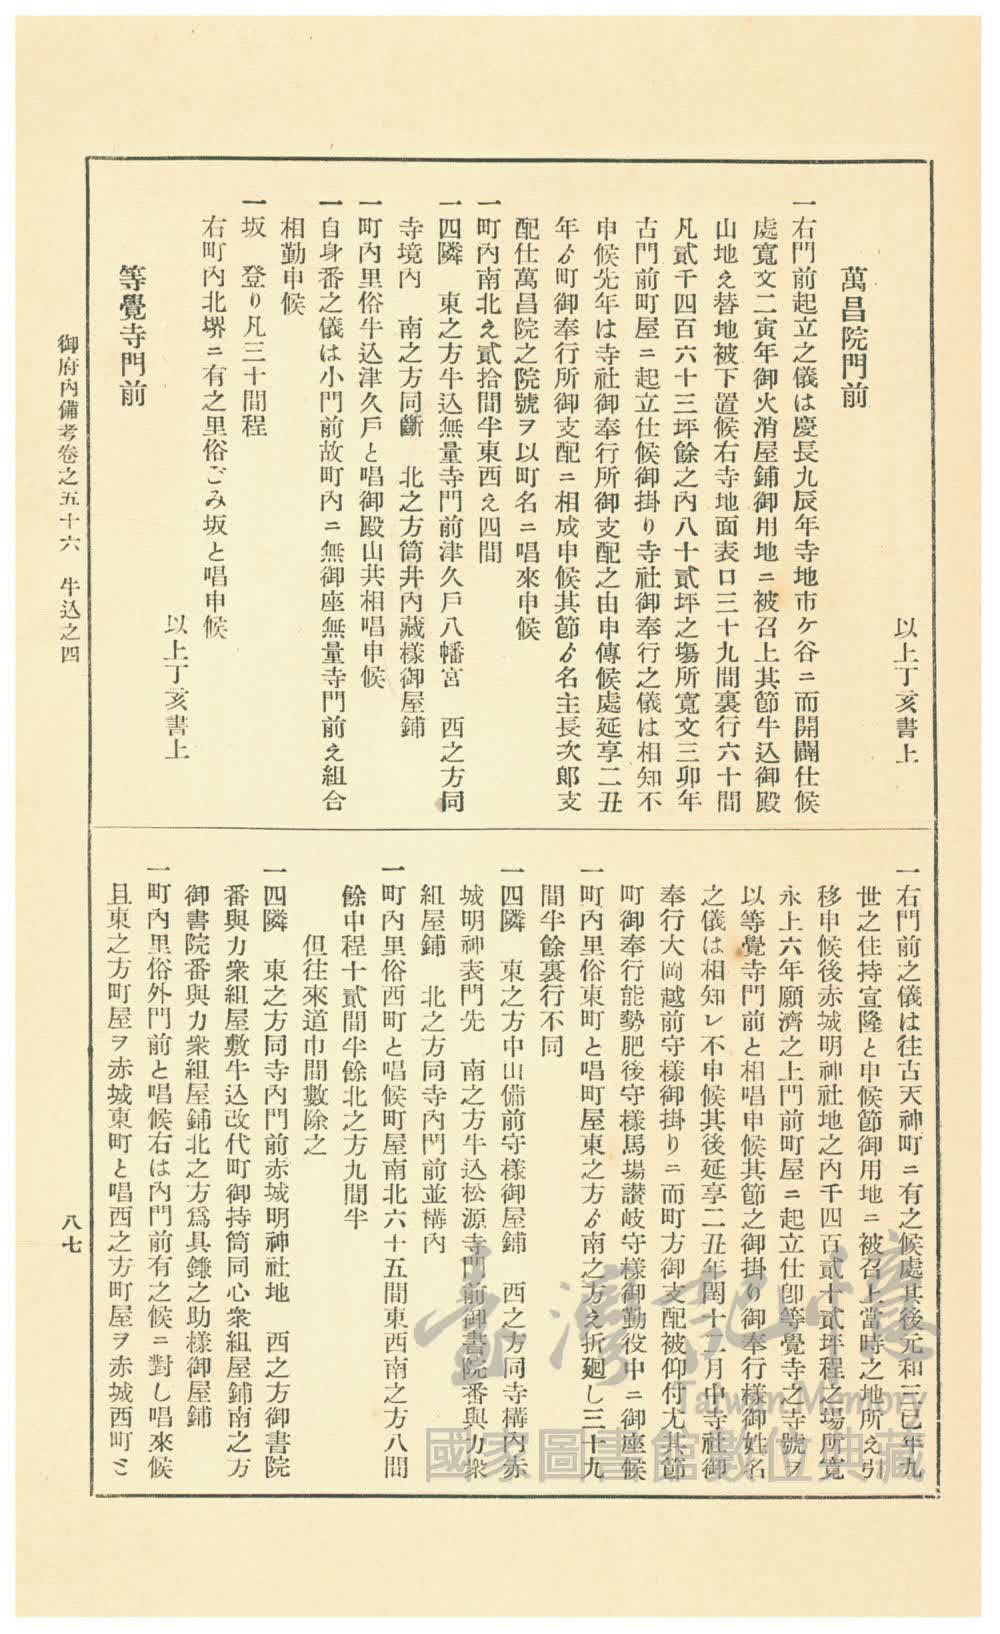 以上丁亥書上
萬昌院門前
一右門前起立之儀は慶長九辰年寺地市ケ谷ニ而開闢仕候
處寬文二寅年御火消屋鋪御用地ニ被召上其節牛込御殿
山地え替地被下置候右寺地面表口三十九間裏行六十間
凡貳千四百六十三坪餘之內八十貳坪之場所寬文三卯年
古門前町屋ニ起立仕候御掛り寺社御奉行之儀は相知不
申候先年は寺社御奉行所御支配之由申傳候處延享二丑
年ゟ町御奉行所御支配ニ相成申候其節ゟ名主長次郞支
配仕萬昌院之院號ヲ以町名ニ唱來申候
一町內南北え貳拾間半東西え四間
一四隣　東之方牛込無量寺門前津久戶八幡宮　西之方同
寺境內　南之方同斷　北之方筒井內藏樣御屋鋪
一町內里俗牛込津久戶と唱御殿山共相唱申候
一自身番之儀は小門前故町內ニ無御座無量寺門前え組合
相勤申候
一坂　登り凡三十間程
右町內北堺ニ有之里俗ごみ坂と唱申候
以上丁亥書上
等覺寺門前
一右門前之儀は往古天神町ニ有之候處其後元和三巳年九
世之住持宣隆と申候節御用地ニ被召上當時之地所え引
移申候後赤城明神社地之內千四百貳十貳坪程之場所寬
永上六年願濟之上門前町屋ニ起立仕卽等覺寺之寺號ヲ
以等覺寺門前と相唱申候其節之御掛り御奉行樣御姓名
之儀は相知レ不申候其後延享二丑年閏十二月中寺社御
奉行大岡越前守樣御掛りニ而町方御支配被仰付尤其節
町御奉行能勢肥後守樣馬場讃岐守樣御勤役中ニ御座候
一町內里俗東町と唱町屋東之方ゟ南之方え折廻し三十九
間半餘裏行不同
一四隣　東之方中山備前守樣御屋鋪　西之方同寺構內赤
城明神表門先　南之方牛込松源寺門前御書院番與力衆
組屋鋪　北之方同寺內門前並構內
一町內里俗西町と唱候町屋南北六十五間東西南之方八間
餘中程十貳間半餘北之方九間半
但往來道巾間數除之
一四隣　東之方同寺內門前赤城明神社地　西之方御書院
番與力衆組屋敷牛込改代町御持筒同心衆組屋鋪南之方
御書院番與力衆組屋鋪北之方爲具鎌之助樣御屋鋪
一町內里俗外門前と唱候右は內門前有之候ニ對し唱來候
且東之方町屋ヲ赤城東町と唱西之方町屋ヲ赤城西町ミ
御府內備考卷之五十六　牛込之四
八七
臺灣記憶
Taiwan Memory
國家圖書館數位典藏